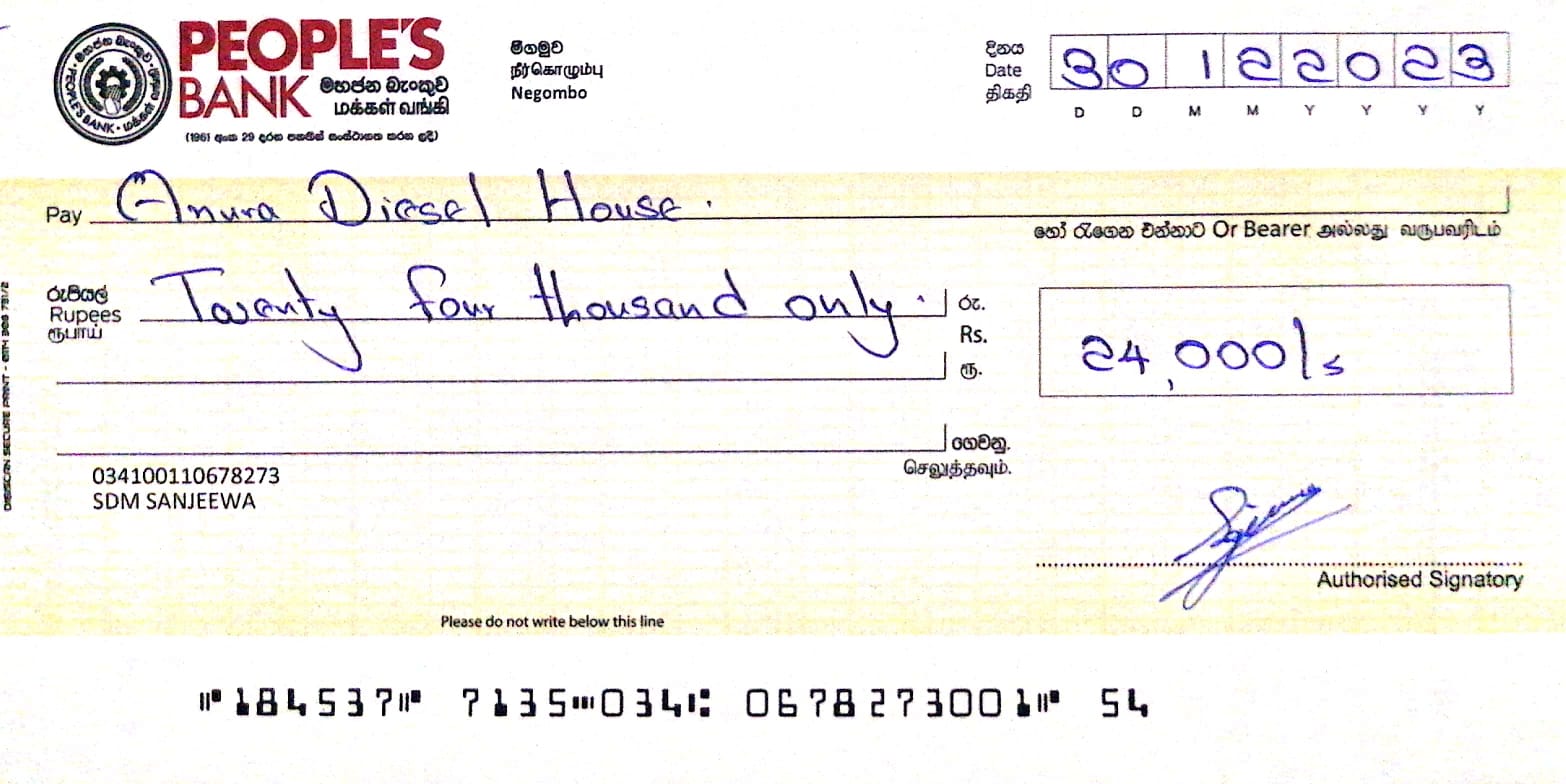 PEOPLE'S
BANK මහජන බැංකුව
மக்கள் வங்கி
(1961 අංක 29 දරන පනතින් සංස්ථාගත කරන ලදී)
මහජන බැංකුව
PEOPLE'S BANK • மக்கள் வங்கி
මීගමුව
நீர்கொழும்பு
Negombo
දිනය
Date
திகதி
30 12 2023
D D M M Y Y Y Y
Pay Anura Diesel House.
හෝ රැගෙන එන්නාට Or Bearer அல்லது வருபவரிடம்
රුපියල්
Rupees
ரூபாய்
Twenty four thousand only.
රු.
Rs.
ரூ.
24,000/s
ගෙවනු.
செலுத்தவும்.
034100110678273
SDM SANJEEWA
Authorised Signatory
Please do not write below this line
⑈184537⑈ 7135⑉034⑆ 0678273001⑈ 54